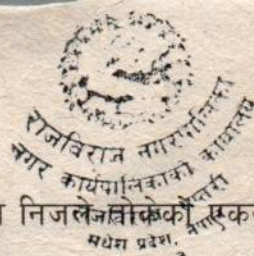 राजविराज नगरपालिका
नगर कार्यपालिकाको कार्यालय
सप्तरी
निजले तोकेको
मधेश प्रदेश, नेपाल